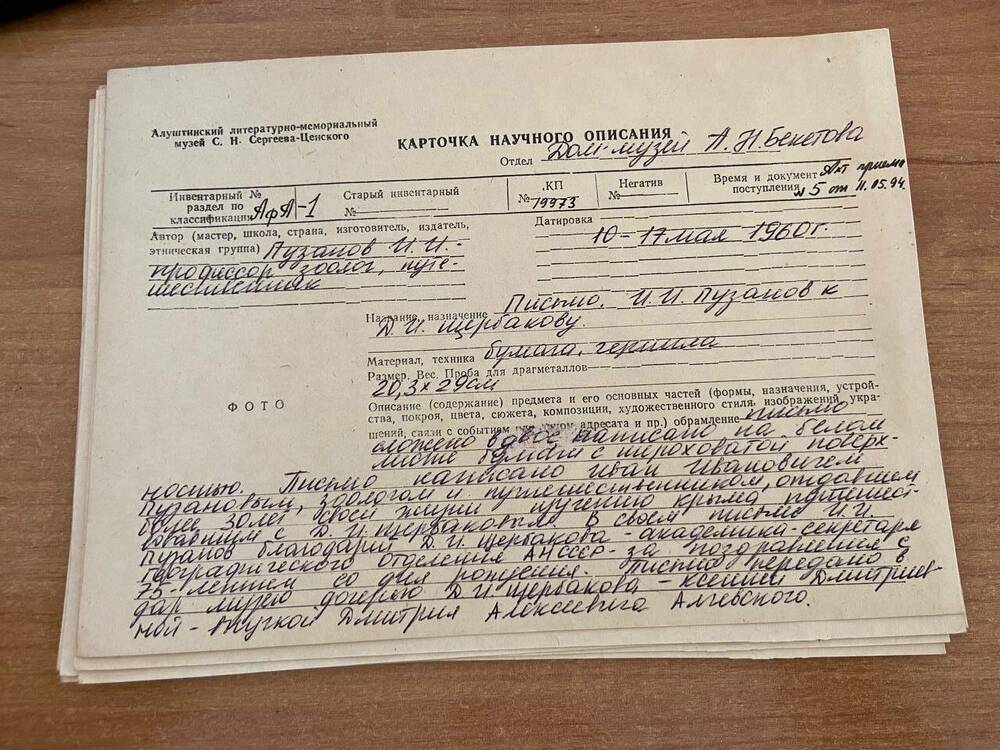 Алуштинский литературно-мемориальный
музей С. Н. Сергеева-Ценского
КАРТОЧКА НАУЧНОГО ОПИСАНИЯ
Отдел Дом-музей А.Н.Бекетова
Инвентарный №
раздел по
классификации АфА-1
Старый инвентарный
№
КП
№ 19973
Негатив
№
Время и документ Акт приема
поступления №5 от 11.05.94.
Автор (мастер, школа, страна, изготовитель, издатель,
этническая группа) Пузанов И.И.-
профессор зоолог, путе-
шественник
Датировка
10-17 мая 1960г.
Название, назначение Письмо. И.И Пузанов к
Д.И. Щербакову.
Материал, техника бумага, чернила
Размер. Вес. Проба для драгметаллов
20,3х29см
ФОТО
Описание (содержание) предмета и его основных частей (формы, назначения, устрой-
ства, покроя, цвета, сюжета, композиции, художественного стиля, изображений, укра-
шений, связи с событием адресата и пр.) обрамление письмо
сложено вдвое написано на белом
листе бумаги с шероховатой поверх-
ностью. Письмо написано Иван Ивановичем
Пузановым, зоологом и путешественником, отдавшем
более 30 лет своей жизни изучению Крыма, путешест-
вовавшим с Д.И. Щербаковым. В своем письме И.И.
Пузанов благодарит Д.И. Щербакова - академика-секретаря
географического отделения АНСССР - за поздравления с
75-летием со дня рождения. Письмо передано в
дар музею дочерью Д.И Щербакова - Ксенией Дмитриев-
ной - внучкой Дмитрия Алексеевича Алчевского.